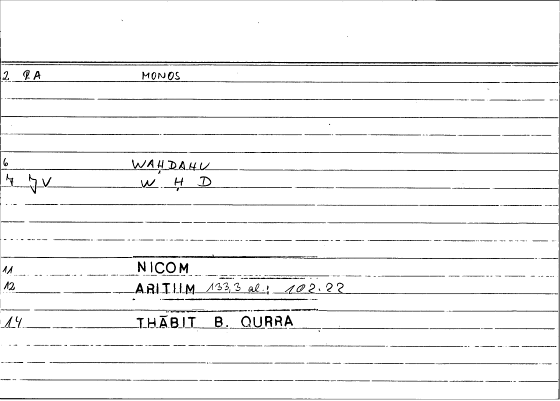 2 RA MONOS
6 WAḤDAHU
7 JV W Ḥ D
11 NICOM
12 ARITHM 133,3 al.: 102.22
14 THĀBIT B. QURRA